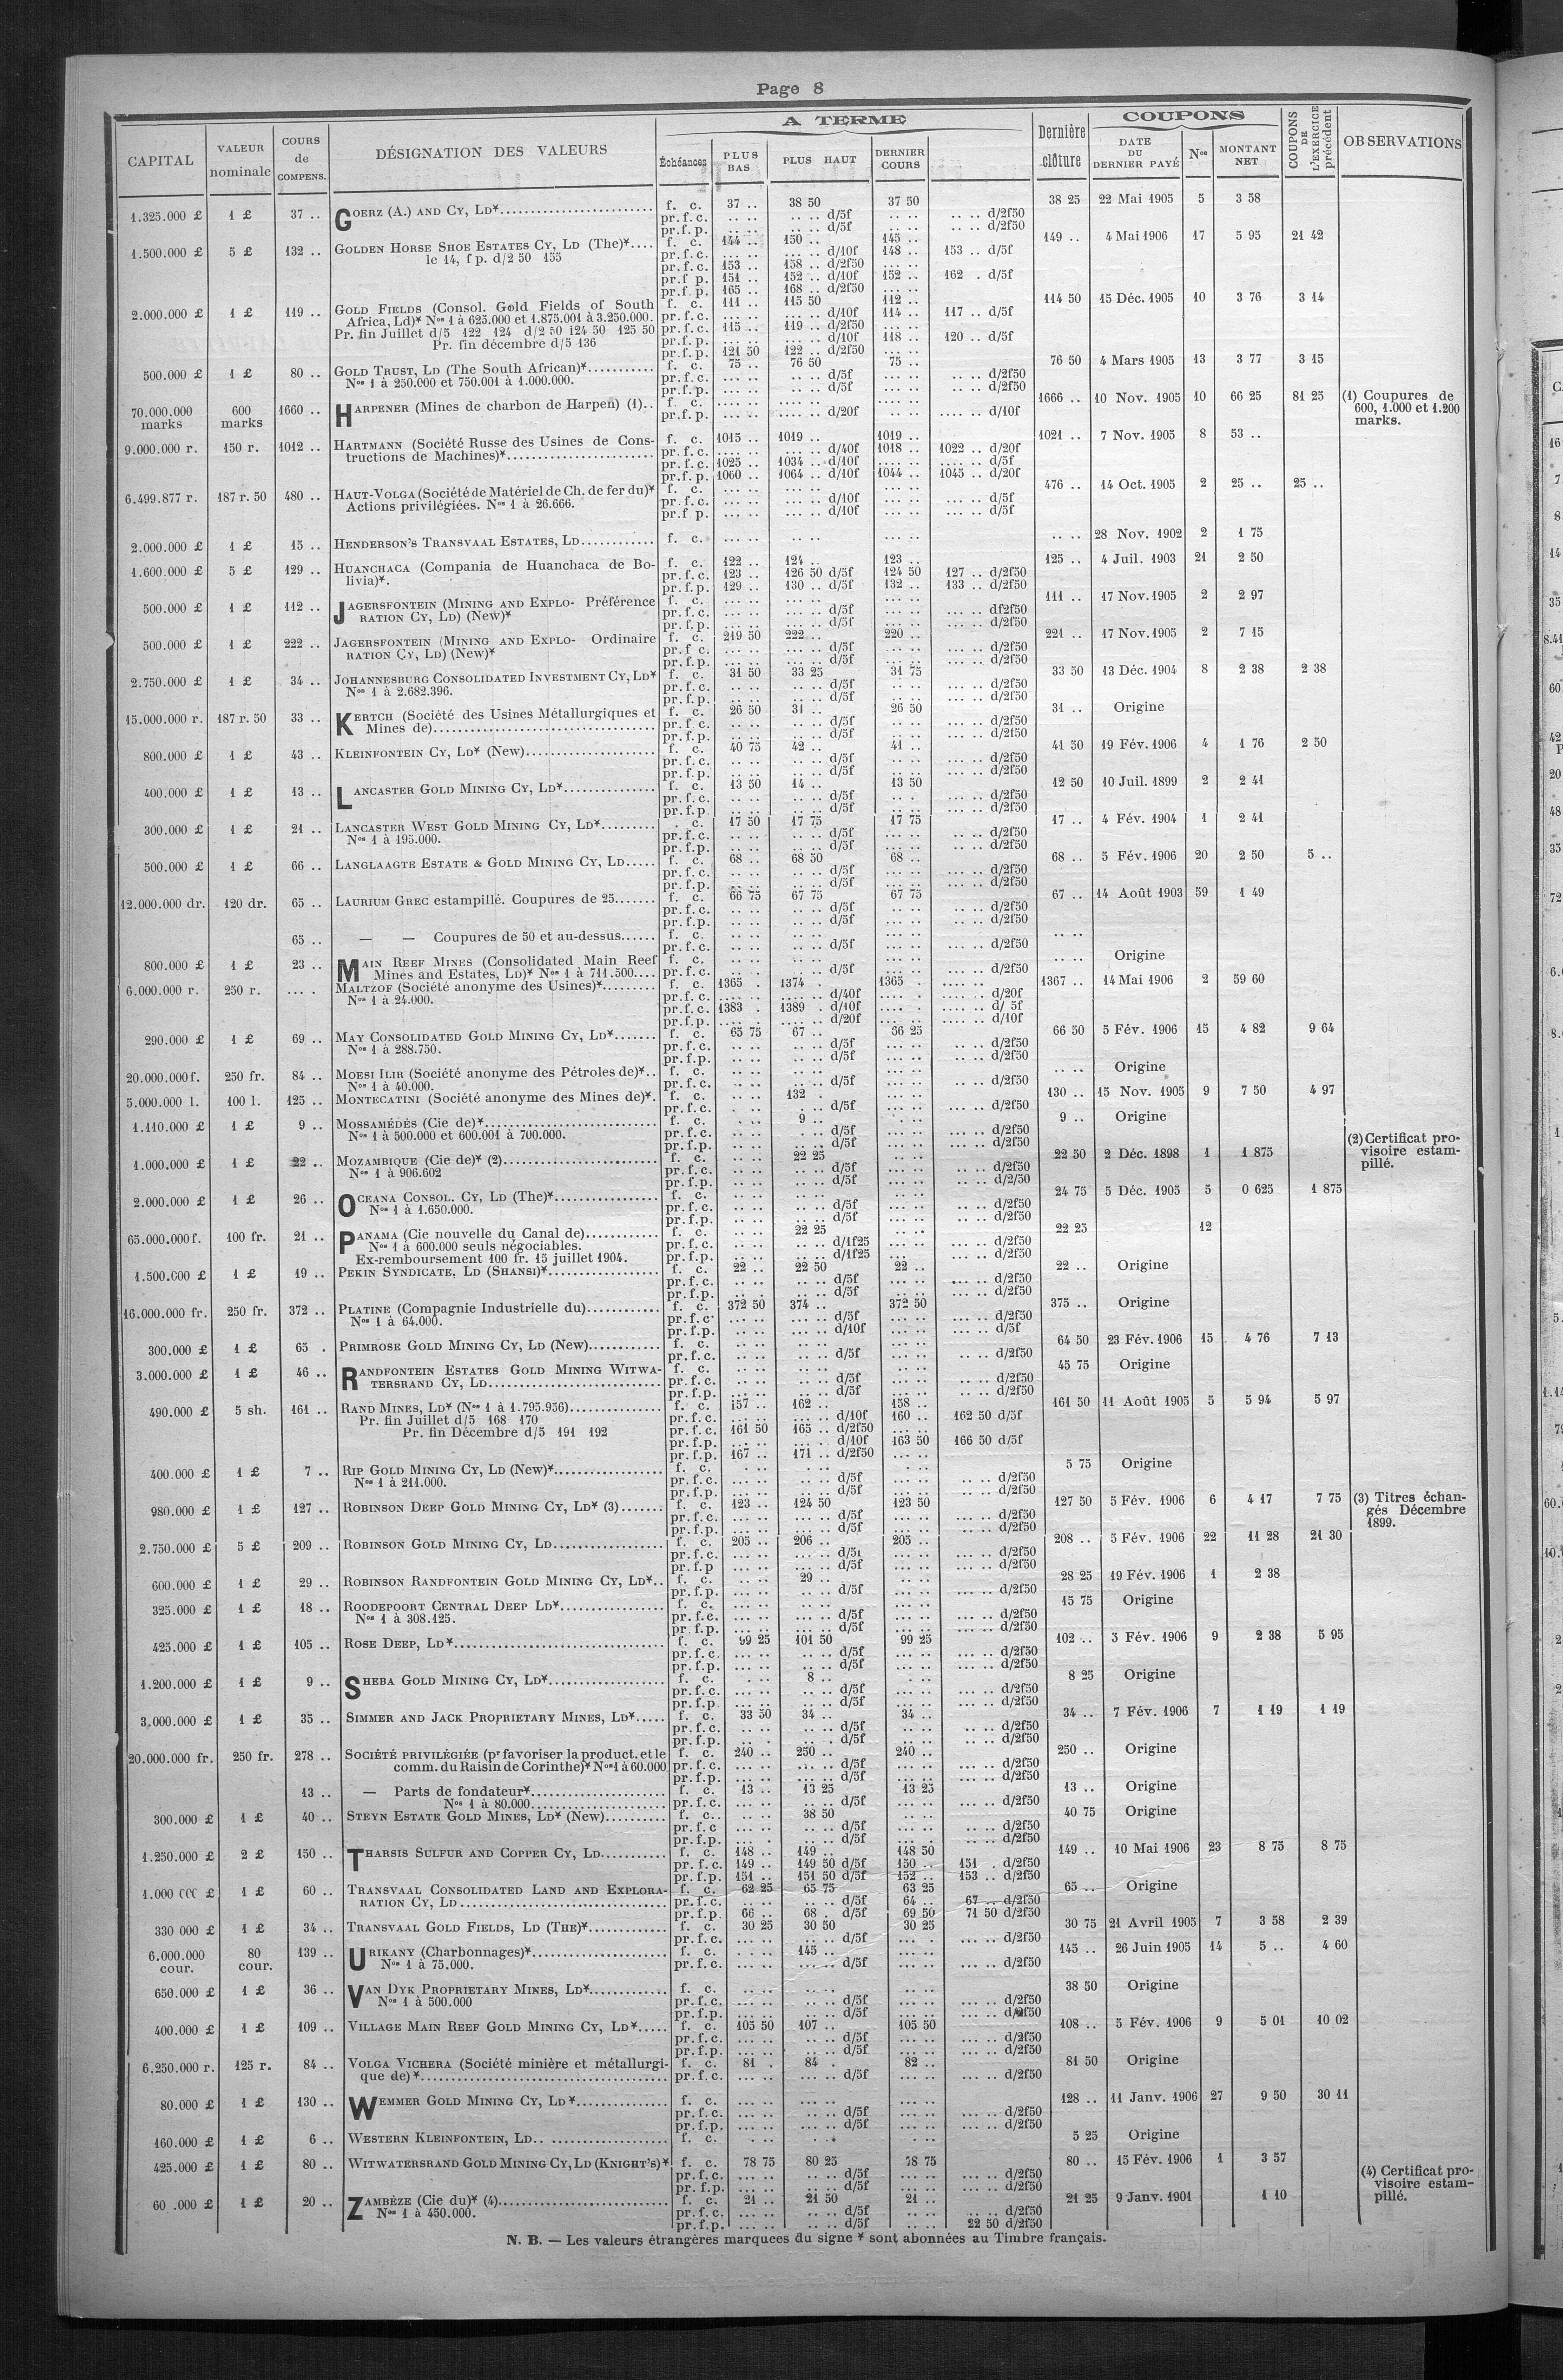 Page 8
CAPITAL | VALEUR nominale | COURS de COMPENS. | DÉSIGNATION DES VALEURS | A TERME | Dernière clôture | COUPONS | COUPONS DE L'EXERCICE précédent | OBSERVATIONS
Échéances | PLUS BAS | PLUS HAUT | DERNIER COURS | DATE DU DERNIER PAYÉ | Nos | MONTANT NET
1.325.000 £ 1 £ 37 .. GOERZ (A.) AND CY, LD* f. c. 37 .. 38 50 37 50 38 25 22 Mai 1905 5 3 58
pr.f.c. .. .. .. .. d/5f .. .. .. .. d/2f50
pr.f.p. .. .. .. .. d/5f .. .. .. .. d/2f50
1.500.000 £ 5 £ 132 .. GOLDEN HORSE SHOE ESTATES CY, LD (The)* f. c. 144 .. 150 .. 145 .. 149 .. 4 Mai 1906 17 5 95 21 42
le 14, f p. d/2 50 155 pr.f.c. ... .. ... .. d/10f 148 .. 153 .. d/5f
pr.f.c. 153 .. 158 .. d/2f50 ... ..
pr.f p. 151 .. 152 .. d/10f 152 .. 162 . d/5f
pr.f p. 165 .. 168 .. d/2f50 ... ..
2.000.000 £ 1 £ 119 .. GOLD FIELDS (Consol. Gold Fields of South f. c. 111 .. 115 50 112 .. 114 50 15 Déc. 1905 10 3 76 3 14
Africa, Ld)* Nos 1 à 625.000 et 1.875.001 à 3.250.000. pr.f.c. ... .. ... .. d/10f 114 .. 117 .. d/5f
Pr. fin Juillet d/5 122 124 d/2 50 124 50 125 50 pr.f.c. 115 .. 119 .. d/2f50 ... ..
Pr. fin décembre d/5 136 pr.f.p. ... .. ... .. d/10f 118 .. 120 .. d/5f
pr.f.p. 121 50 122 .. d/2f50 ... ..
500.000 £ 1 £ 80 .. GOLD TRUST, LD (The South African)* f. c. 75 .. 76 50 75 .. 76 50 4 Mars 1905 13 3 77 3 15
Nos 1 à 250.000 et 750.001 à 1.000.000. pr.f.c. ... .. .. .. d/5f ... .. .. .. d/2f50
pr.f.p. ... .. .. .. d/5f ... .. .. .. d/2f50
70.000.000 marks 600 marks 1660 .. HARPENER (Mines de charbon de Harpen) (1).. f. c. .... .. .... .. .... .. 1666 .. 10 Nov. 1905 10 66 25 81 25 (1) Coupures de 600, 1.000 et 1.200 marks.
pr.f.p. .... .. .... .. d/20f .. .. .... .. d/10f
9.000.000 r. 150 r. 1012 .. HARTMANN (Société Russe des Usines de Cons- f. c. 1015 .. 1019 .. 1019 .. 1021 .. 7 Nov. 1905 8 53 ..
tructions de Machines)* pr.f.c. .... .. .... .. d/40f 1018 .. 1022 .. d/20f
pr.f.c. 1025 .. 1034 .. d/10f .... .. .... .. d/5f
pr.f.p. 1060 .. 1064 .. d/10f 1044 .. 1045 .. d/20f
6.499.877 r. 187 r. 50 480 .. HAUT-VOLGA (Société de Matériel de Ch. de fer du)* f. c. ... .. ... .. ... .. 476 .. 14 Oct. 1905 2 25 .. 25 ..
Actions privilégiées. Nos 1 à 26.666. pr.f.c. ... .. ... .. d/10f ... .. ... .. d/5f
pr.f p. ... .. ... .. d/10f ... .. ... .. d/5f
2.000.000 £ 1 £ 15 .. HENDERSON'S TRANSVAAL ESTATES, LD f. c. ... .. .. .. ... .. .. .. 28 Nov. 1902 2 1 75
1.600.000 £ 5 £ 129 .. HUANCHACA (Compania de Huanchaca de Bo- f. c. 122 .. 124 .. 123 .. 125 .. 4 Juil. 1903 21 2 50
livia)*. pr.f.c. 123 .. 126 50 d/5f 124 50 127 .. d/2f50
pr.f.p. 129 .. 130 .. d/5f 132 .. 133 .. d/2f50
500.000 £ 1 £ 112 .. JAGERSFONTEIN (MINING AND EXPLO- Préférence f. c. ... .. ... .. ... .. 111 .. 17 Nov. 1905 2 2 97
RATION CY, LD) (New)* pr.f.c. ... .. ... .. d/5f ... .. ... .. df2f50
pr.f.p. ... .. ... .. d/5f ... .. ... .. d/2f50
500.000 £ 1 £ 222 .. JAGERSFONTEIN (MINING AND EXPLO- Ordinaire f. c. 219 50 222 .. 220 .. 221 .. 17 Nov. 1905 2 7 15
RATION CY, LD) (New)* pr.f c. ... .. ... .. d/5f ... .. ... .. d/2f50
pr.f.p. ... .. ... .. d/5f ... .. ... .. d/2f50
2.750.000 £ 1 £ 34 .. JOHANNESBURG CONSOLIDATED INVESTMENT CY, LD* f. c. 31 50 33 25 31 75 33 50 13 Déc. 1904 8 2 38 2 38
Nos 1 à 2.682.396. pr.f.c. .. .. .. .. d/5f .. .. ... .. d/2f50
pr.f.p. .. .. .. .. d/5f .. .. ... .. d/2f50
15.000.000 r. 187 r. 50 33 .. KERTCH (Société des Usines Métallurgiques et f. c. 26 50 31 .. 26 50 31 .. Origine
Mines de) pr.f c. .. .. .. .. d/5f .. .. ... .. d/2f50
pr.f.p. .. .. .. .. d/5f .. .. ... .. d/2f50
800.000 £ 1 £ 43 .. KLEINFONTEIN CY, LD* (New) f. c. 40 75 42 .. 41 .. 41 50 19 Fév. 1906 4 1 76 2 50
pr.f.c. .. .. .. .. d/5f .. .. ... .. d/2f50
pr.f.p. .. .. .. .. d/5f .. .. ... .. d/2f50
400.000 £ 1 £ 13 .. LANCASTER GOLD MINING CY, LD* f. c. 13 50 14 .. 13 50 12 50 10 Juil. 1899 2 2 41
pr.f.c. .. .. .. .. d/5f .. . ... .. d/2f50
pr.f.p. .. .. .. .. d/5f .. .. ... .. d/2f50
300.000 £ 1 £ 21 .. LANCASTER WEST GOLD MINING CY, LD* . c. 17 50 17 75 17 75 17 .. 4 Fév. 1904 1 2 41
Nos 1 à 195.000. pr.f.c. .. .. .. .. d/5f ... .. .. .. d/2f50
pr.f.p. .. .. .. .. d/5f ... .. .. .. d/2f50
500.000 £ 1 £ 66 .. LANGLAAGTE ESTATE & GOLD MINING CY, LD f. c. 68 .. 68 50 68 .. 68 .. 5 Fév. 1906 20 2 50 5 ..
pr.f.c. .. .. .. .. d/5f ... .. ... .. d/2f50
pr.f.p. .. .. .. .. d/5f ... .. ... .. d/2f50
12.000.000 dr. 120 dr. 65 .. LAURIUM GREC estampillé. Coupures de 25 f. c. 66 75 67 75 67 75 67 .. 14 Août 1903 59 1 49
pr.f.c. .. .. .. .. d/5f .. .. .. .. d/2f50
pr.f.p. .. .. .. .. d/5f ... .. .. .. d/2f50
65 .. — — Coupures de 50 et au-dessus f. c. .. .. .. .. ... .. .. ..
pr.f.c. .. .. .. .. d/5f ... .. ... .. d/2f50
800.000 £ 1 £ 23 .. MAIN REEF MINES (Consolidated Main Reef f. c. .. .. .. .. .. .. .. .. Origine
Mines and Estates, Ld)* Nos 1 à 711.500 pr.f.c. .. . .. .. d/5f .. .. ... .. d/2f50
6.000.000 r. 250 r. ... . MALTZOF (Société anonyme des Usines)* f. c. 1365 . 1374 . 1365 . .... .. 1367 .. 14 Mai 1906 2 59 60
Nos 1 à 24.000. pr.f.c. .... .. .... .. d/40f .... . .... .. d/20f
pr.f.c. 1383 . 1389 . d/10f .... . .... .. d/ 5f
pr.f.p. .... . .... .. d/20f ... .. .... .. d/10f
290.000 £ 1 £ 69 .. MAY CONSOLIDATED GOLD MINING CY, LD* f. c. 65 75 67 .. 66 25 66 50 5 Fév. 1906 15 4 82 9 64
Nos 1 à 288.750. pr.f.c. .. .. .. .. d/5f ... .. ... .. d/2f50
pr.f.p. .. .. .. .. d/5f ... .. ... .. d/2f50
20.000.000 f. 250 fr. 84 .. MOESI ILIR (Société anonyme des Pétroles de)*.. f. c. .. .. .. .. ... .. .. .. Origine
Nos 1 à 40.000. pr.f.c. .. .. .. .. d/5f ... .. .. .. d/2f50
5.000.000 l. 100 l. 125 .. MONTECATINI (Société anonyme des Mines de)*. f. c. .. .. 132 . ... .. 130 .. 15 Nov. 1905 9 7 50 4 97
pr.f.c. . .. . .. d/5f ... .. ... .. d/2f50
1.110.000 £ 1 £ 9 .. MOSSAMÉDÈS (Cie de)* f. c. . .. 9 .. . .. 9 .. Origine
Nos 1 à 500.000 et 600.001 à 700.000. pr.f.c. .. .. . .. d/5f ... .. ... .. d/2f50
pr.f.p. .. .. . .. d/5f ... .. ... .. d/2f50
(2) Certificat pro-
visoire estam-
pillé.
1.000.000 £ 1 £ 22 .. MOZAMBIQUE (Cie de)* (2) f. c. .. .. 22 25 .. .. 22 50 2 Déc. 1898 1 1 875
Nos 1 à 906.602 pr.f.c. .. .. .. .. d/5f ... .. .. .. d/2f50
pr.f.p. .. .. .. .. d/5f ... .. .. .. d/2/50
2.000.000 £ 1 £ 26 .. OCEANA CONSOL. CY, LD (The)* f. c. .. .. .. .. .. .. 24 75 5 Déc. 1905 5 0 625 1 875
Nos 1 à 1.650.000. pr.f.c. .. .. .. .. d/5f ... .. .. .. d/2f50
pr.f.p. .. .. .. .. d/5f ... .. .. .. d/2f50
65.000.000 f. 100 fr. 21 .. PANAMA (Cie nouvelle du Canal de) f. c. .. .. 22 25 .. .. 22 25 12
Nos 1 à 600.000 seuls négociables. pr.f.c. .. .. .. .. d/1f25 ... .. ... .. d/2f50
Ex-remboursement 100 fr. 15 juillet 1904. pr.f.p. .. .. .. .. d/1f25 ... ... .. d/2f50
1.500.000 £ 1 £ 19 .. PEKIN SYNDICATE, LD (SHANSI)* f. c. 22 .. 22 50 22 .. 22 .. Origine
pr.f.c. .. .. .. .. d/5f ... .. ... .. d/2f50
pr.f.p. .. . .. .. d/5f ... .. .. .. d/2f50
16.000.000 fr. 250 fr. 372 .. PLATINE (Compagnie Industrielle du) f. c. 372 50 374 .. 372 50 375 .. Origine
Nos 1 à 64.000. pr.f.c. ... .. ... .. d/5f ... .. .. .. d/2f50
pr.f.p. .. .. ... .. d/10f ... .. ... .. d/5f
300.000 £ 1 £ 65 . PRIMROSE GOLD MINING CY, LD (New) f. c. .. .. .. .. ... .. 64 50 23 Fév. 1906 15 4 76 7 13
pr.f.c. .. .. .. .. d/5f ... .. .. .. d/2f50
3.000.000 £ 1 £ 46 .. RANDFONTEIN ESTATES GOLD MINING WITWA- f. c. .. .. .. .. .. .. 45 75 Origine
TERSRAND CY, LD pr.f.c. .. .. .. .. d/5f ... .. .. .. d/2f50
pr.f.p. ... .. .. .. d/5f ... .. .. .. d/2f50
490.000 £ 5 sh. 161 .. RAND MINES, LD* (Nos 1 à 1.795.956) f. c. 157 .. 162 .. 158 .. 161 50 11 Août 1905 5 5 94 5 97
Pr. fin Juillet d/5 168 170 pr.f.c. ... .. ... .. d/10f 160 .. 162 50 d/5f
Pr. fin Décembre d/5 191 192 pr.f.c. 161 50 165 .. d/2f50 ... ..
pr.f.p. ... .. ... . d/10f 163 50 166 50 d/5f
pr.f.p. 167 .. 171 .. d/2f50 ... ..
400.000 £ 1 £ 7 .. RIP GOLD MINING CY, LD (New)* f. c. . .. . .. . .. 5 75 Origine
Nos 1 à 211.000. pr.f.c. ... .. .. .. d/5f ... .. .. .. d/2f50
pr.f.p. ... .. .. .. d/5f ... .. .. .. d/2f50
980.000 £ 1 £ 127 .. ROBINSON DEEP GOLD MINING CY, LD* (3) f. c. 123 .. 124 50 123 50 127 50 5 Fév. 1906 6 4 17 7 75 (3) Titres échan-
pr.f.c. ... .. ... .. d/5f ... .. ... .. d/2f50 gés Décembre
pr.f.p. ... .. ... .. d/5f ... .. ... .. d/2f50 1899.
2.750.000 £ 5 £ 209 .. ROBINSON GOLD MINING CY, LD f. c. 205 .. 206 .. 205 .. 208 .. 5 Fév. 1906 22 11 28 21 30
pr.f.c. ... .. ... .. d/5f ... .. ... .. d/2f50
pr.f.p ... .. ... .. d/5f ... .. ... .. d/2f50
600.000 £ 1 £ 29 .. ROBINSON RANDFONTEIN GOLD MINING CY, LD*.. f. c. ... .. 29 .. .. .. 28 25 19 Fév. 1906 1 2 38
pr.f.p. ... .. ... .. d/5f ... .. ... .. d/2f50
325.000 £ 1 £ 18 .. ROODEPOORT CENTRAL DEEP LD* f. c. ... .. ... .. ... .. 15 75 Origine
Nos 1 à 308.125. pr.f.c. ... .. ... .. d/5f ... .. ... .. d/2f50
pr.f.p. ... .. ... .. d/5f ... .. ... .. d/2f50
425.000 £ 1 £ 105 .. ROSE DEEP, LD* f. c. 99 25 101 50 99 25 102 .. 3 Fév. 1906 9 2 38 5 95
pr.f.c. ... .. .. .. d/5f ... .. ... .. d/2f50
pr.f.p. ... .. .. .. d/5f ... .. ... .. d/2f50
1.200.000 £ 1 £ 9 .. SHEBA GOLD MINING CY, LD* f. c. . .. 8 .. . .. 8 25 Origine
pr.f.c. ... .. .. .. d/5f ... .. ... .. d/2f50
pr.f.p ... .. .. .. d/5f ... .. ... .. d/2f50
3.000.000 £ 1 £ 35 .. SIMMER AND JACK PROPRIETARY MINES, LD* f. c. 33 50 34 .. 34 .. 34 .. 7 Fév. 1906 7 1 19 1 19
pr.f.c. .. .. .. .. d/5f .. .. .. .. d/2f50
pr.f.p. .. . .. .. d/5f .. .. .. .. d/2f50
20.000.000 fr. 250 fr. 278 .. SOCIÉTÉ PRIVILÉGIÉE (pr favoriser la product. et le f. c. 240 .. 250 .. 240 .. 250 .. Origine
comm. du Raisin de Corinthe)* Nos 1 à 60.000 pr.f.c. ... .. ... .. d/5f ... .. ... .. d/2f50
pr.f.p. ... .. ... .. d/5f ... .. ... .. d/2f50
13 .. — Parts de fondateur* f. c. 13 .. 13 25 13 25 13 .. Origine
Nos 1 à 80.000 pr.f.c. ... .. .. .. d/5f ... .. ... .. d/2f50
300.000 £ 1 £ 40 .. STEYN ESTATE GOLD MINES, LD* (New) f. c. .. .. 38 50 .. .. 40 75 Origine
pr.f.c ... .. .. .. d/5f ... .. .. .. d/2f50
pr.f.p. ... . .. .. d/5f ... . .. .. d/2f50
1.250.000 £ 2 £ 150 .. THARSIS SULFUR AND COPPER CY, LD f. c. 148 .. 149 .. 148 50 149 .. 10 Mai 1906 23 8 75 8 75
pr.f.c. 149 .. 149 50 d/5f 150 .. 151 . d/2f50
pr.f.p. 151 .. 151 50 d/5f 152 .. 153 .. d/2f50
1.000 000 £ 1 £ 60 .. TRANSVAAL CONSOLIDATED LAND AND EXPLORA- f. c. 62 25 65 75 63 25 65 .. Origine
RATION CY, LD pr.f.c. .. .. .. .. d/5f 64 .. 67 .. d/2f50
pr.f.p. 66 .. 68 . d/5f 69 50 71 50 d/2f50
330 000 £ 1 £ 34 .. TRANSVAAL GOLD FIELDS, LD (THE)* f. c. 30 25 30 50 30 25 30 75 21 Avril 1905 7 3 58 2 39
pr.f.c. ... .. .. .. d/5f ... . ... .. d/2f50
6.000.000 cour. 80 cour. 139 .. URIKANY (Charbonnages)* f. c. . .. 145 .. ... .. 145 .. 26 Juin 1905 14 5 .. 4 60
Nos 1 à 75.000. pr.f.c. ... .. ... .. d/5f ... .. ... .. d/2f50
650.000 £ 1 £ 36 .. VAN DYK PROPRIETARY MINES, LD* f. c. .. .. .. .. .. .. 38 50 Origine
Nos 1 à 500.000 pr.f.c. ... .. ... .. d/5f ... .. ... .. d/2f50
pr.f.p. ... .. ... .. d/5f ... .. ... .. d/2f50
400.000 £ 1 £ 109 .. VILLAGE MAIN REEF GOLD MINING CY, LD* f. c. 105 50 107 .. 105 50 108 .. 5 Fév. 1906 9 5 01 10 02
pr.f.c. ... .. ... .. d/5f ... .. ... .. d/2f50
pr.f.p. ... .. ... .. d/5f ... .. ... .. d/2f50
6.250.000 r. 125 r. 84 .. VOLGA VICHERA (Société minière et métallurgi- f. c. 81 . 84 . 82 .. 81 50 Origine
que de)* pr.f.c. ... .. ... .. d/5f ... .. ... .. d/2f50
80.000 £ 1 £ 130 .. WEMMER GOLD MINING CY, LD* f. c. ... .. ... .. ... .. 128 .. 11 Janv. 1906 27 9 50 30 11
pr.f.c. ... .. ... .. d/5f ... .. ... .. d/2f50
pr.f.p. ... .. ... .. d/5f ... .. ... .. d/2f50
160.000 £ 1 £ 6 .. WESTERN KLEINFONTEIN, LD f. c. . .. . .. . .. 5 25 Origine
425.000 £ 1 £ 80 .. WITWATERSRAND GOLD MINING CY, LD (KNIGHT'S)* f. c. 78 75 80 25 78 75 80 .. 15 Fév. 1906 1 3 57
pr.f.c. ... .. .. .. d/5f ... .. ... .. d/2f50
pr.f.p. ... .. .. .. d/5f ... .. ... .. d/2f50
(4) Certificat pro-
visoire estam-
pillé.
60 .000 £ 1 £ 20 .. ZAMBÈZE (Cie du)* (4) f. c. 21 .. 21 50 21 .. 21 25 9 Janv. 1901 1 10
Nos 1 à 450.000. pr.f.c. ... .. .. .. d/5f ... .. .. .. d/2f50
pr.f.p. ... .. .. .. d/5f .. .. 22 50 d/2f50
N. B. — Les valeurs étrangères marquees du signe * sont abonnées au Timbre français.